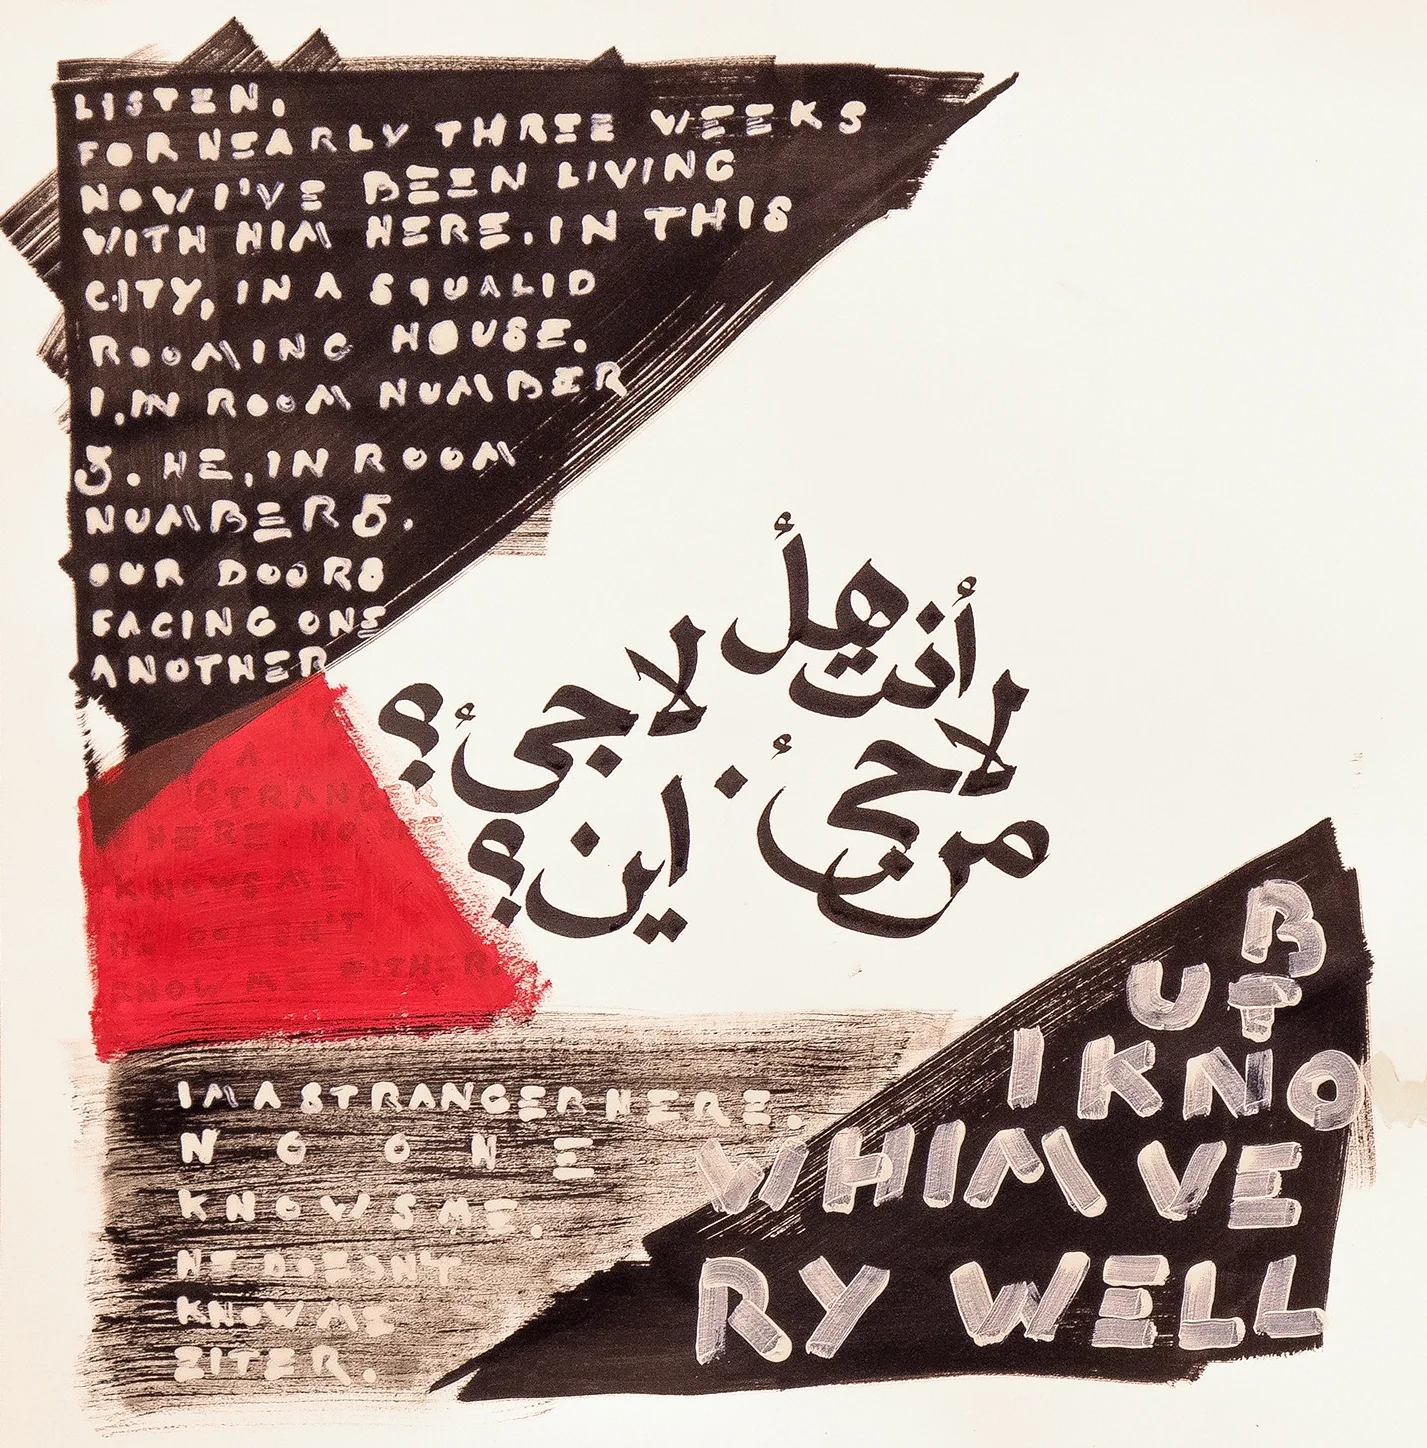 LISTEN.
FOR NEARLY THREE WEEKS
NOW I'VE BEEN LIVING
WITH HIM HERE. IN THIS
CITY, IN A SQUALID
ROOMING HOUSE.
I, IN ROOM NUMBER
3. HE, IN ROOM
NUMBER 5.
OUR DOORS
FACING ONE
ANOTHER
هل أنت لاجئ؟
لاجئ من اين؟
I'M
A
STRANGER
HERE. NO ONE
KNOWS ME
HE DOESN'T
KNOW ME EITHER.
IM A STRANGER HERE.
NO ONE
KNOWS ME.
HE DOESN'T
KNOW ME
EITER.
B
UT
I KNO
W HIM VE
RY WELL